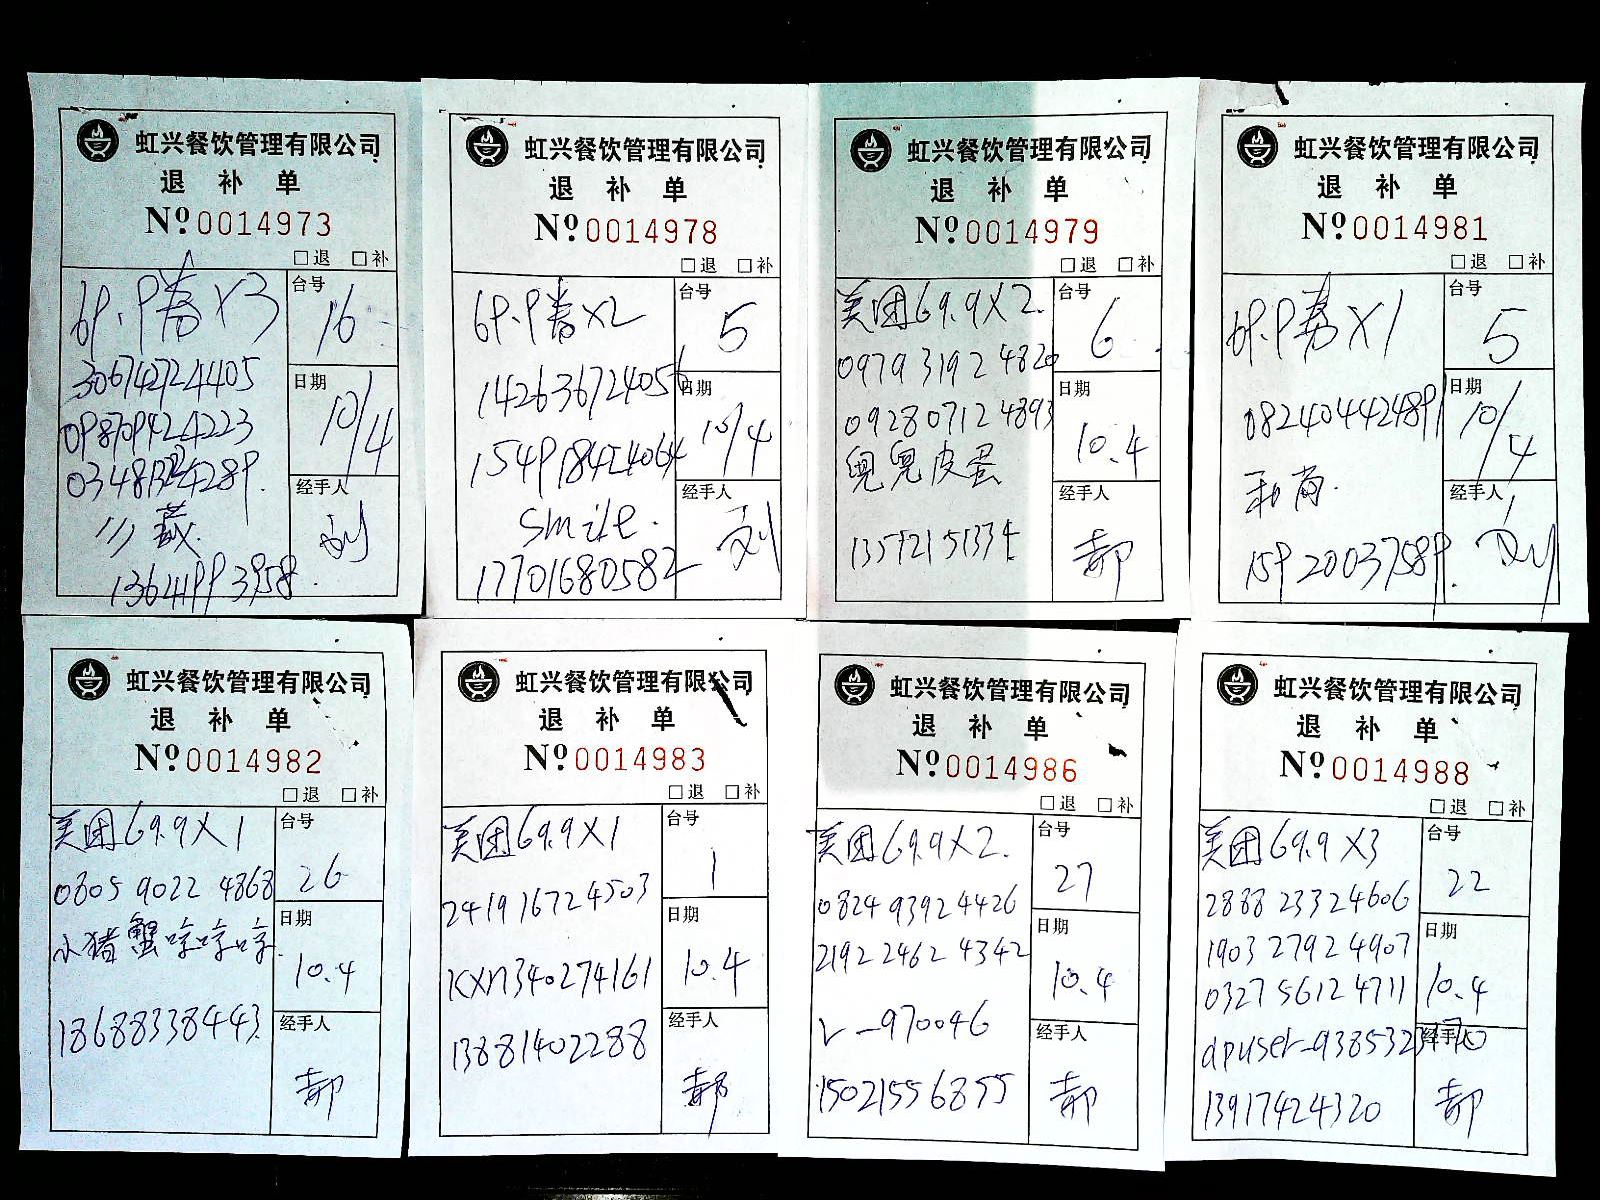 虹兴餐饮管理有限公司
退 补 单
Nº0014973
□退 □补
69.9券X3
台号
16
306742724405
日期
10/4
098709424223
经手人
刘
虹兴餐饮管理有限公司
退 补 单
Nº0014978
□退 □补
69.9券X2
台号
5
142636724056
日期
10/4
154918424064
经手人
刘
smile.
17701680582
虹兴餐饮管理有限公司
退 补 单
Nº0014979
□退 □补
美团69.9X2.
台号
6
0979 3192 4820
日期
10.4
0928 0712 4893
经手人
郝
兜兜皮蛋
13572151334
虹兴餐饮管理有限公司
退 补 单
Nº0014981
□退 □补
69.9券X1
台号
5
082404424891
日期
10/4
经手人
刘
15920037589.
虹兴餐饮管理有限公司
退 补 单
Nº0014982
□退 □补
美团69.9X1
台号
26
0805 9022 4868
日期
10.4
小猪蟹哼哼哼
18688338443.
经手人
郝
虹兴餐饮管理有限公司
退 补 单
Nº0014983
□退 □补
美团69.9X1
台号
1
2419 1672 4503
日期
10.4
KXM340274161
经手人
郝
13881402288
虹兴餐饮管理有限公司
退 补 单
Nº0014986
□退 □补
美团69.9X2.
台号
27
0824 9392 4426
日期
10.4
2192 2462 4342
经手人
郝
15021556855
虹兴餐饮管理有限公司
退 补 单
Nº0014988
□退 □补
美团69.9X3
台号
22
2888 2332 4606
日期
10.4
1903 2792 4907
0327 5612 4711
经手人
郝
13917424320